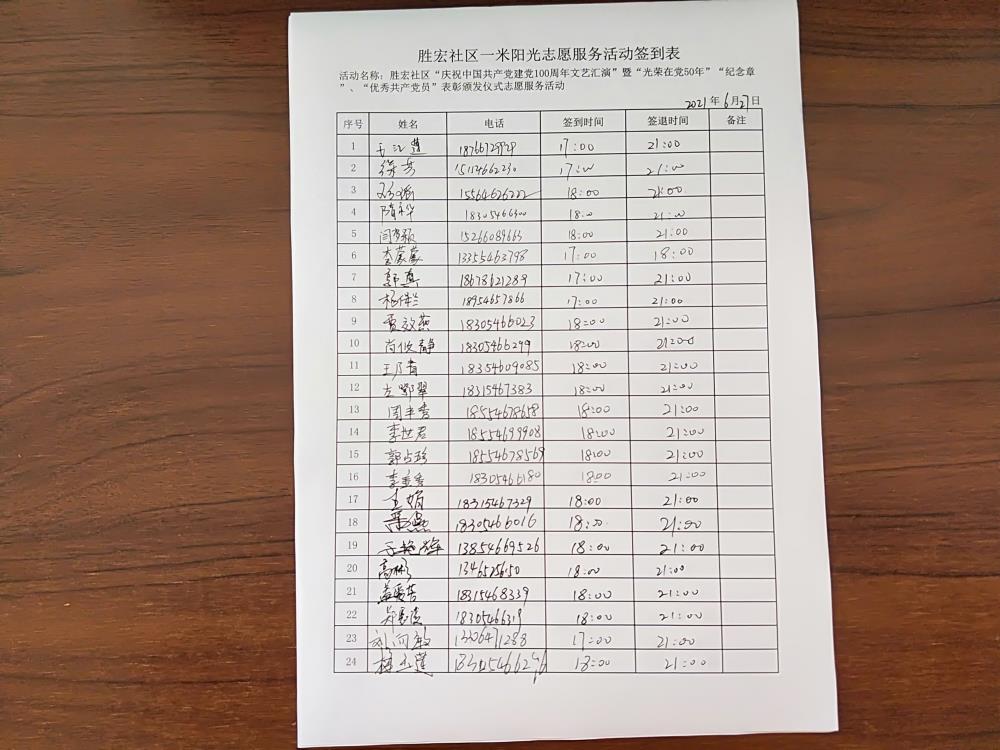 胜宏社区一米阳光志愿服务活动签到表
活动名称：胜宏社区“庆祝中国共产党建党100周年文艺汇演”暨“光荣在党50年”“纪念章
”、“优秀共产党员”表彰颁发仪式志愿服务活动
2021年6月27日
序号 姓名 电话 签到时间 签退时间 备注
1 于江莲 18766729929 17:00 21:00
2 徐芳 15114662230 17:00 21:00
3 15564626222 18:00 21:00
4 隋永华 18305466300 18:00 21:00
5 闫梦颖 15266089663 18:00 21:00
6 李蒙蒙 13355463798 17:00 18:00
7 郭真 18678621289 17:00 21:00
8 杨伟兰 18954657866 17:00 21:00
9 贾效燕 18305466023 18:00 21:00
10 尚俊静 18305466299 18:00 21:00
11 18354609085 18:00 21:00
12 左鄂翠 18315467383 18:00 21:00
13 周丰秀 18554678658 18:00 21:00
14 李世君 18554699908 18:00 21:00
15 郭占珍 18554678569 18:00 21:00
16 18305466180 18:00 21:00
17 王娟 18315467329 18:00 21:00
18 18305466016 18:00 21:00
19 13854669526 18:00 21:00
20 高彬 18:00 21:00
21 盖爱芳 18315468339 18:00 21:00
22 18305466319 18:00 21:00
23 刘向敏 17:00 21:00
24 杨玉莲 18:00 21:00